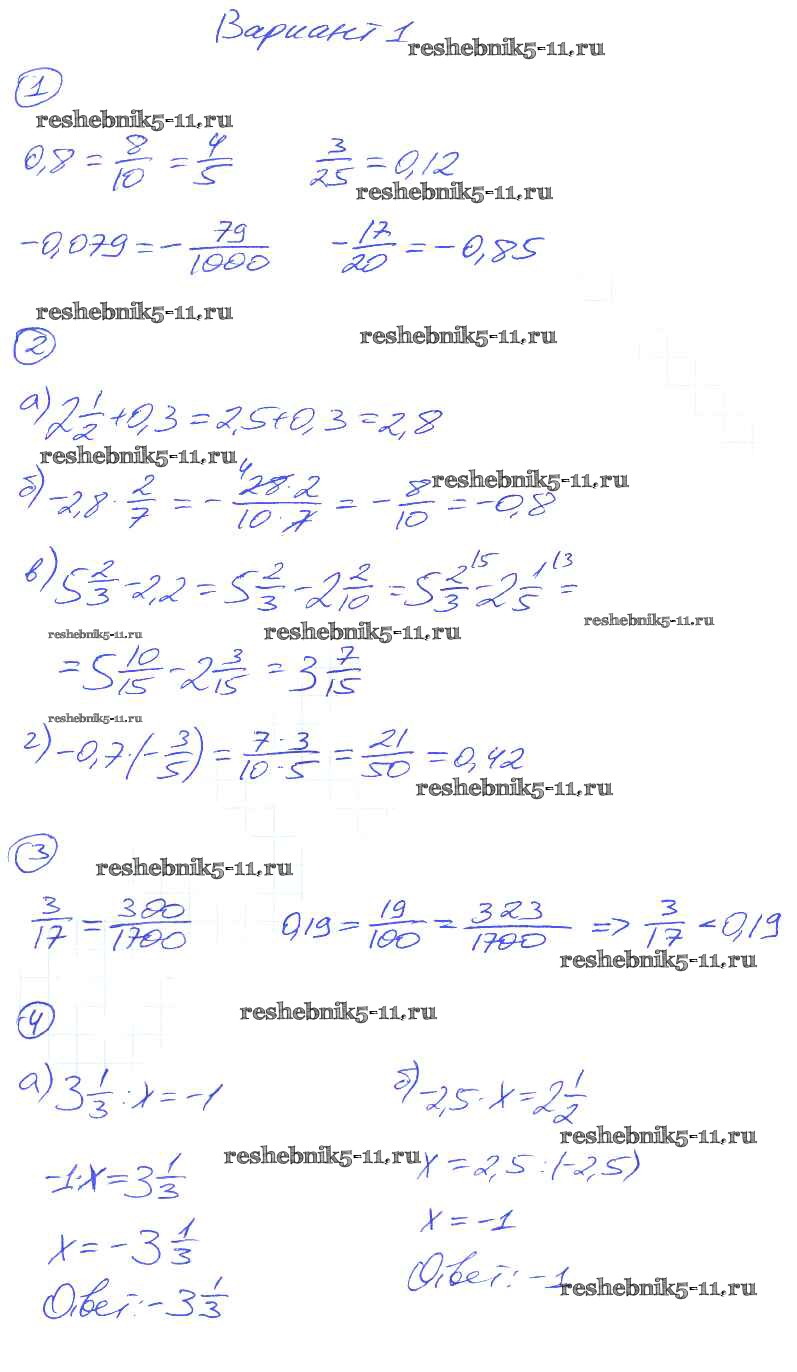 Вариант 1
reshebnik5-11.ru
1
reshebnik5-11.ru
0,8 = 8/10 = 4/5 3/25 = 0,12
reshebnik5-11.ru
-0,079 = - 79/1000 - 17/20 = -0,85
reshebnik5-11.ru
reshebnik5-11.ru
2
а) 2 1/2 + 0,3 = 2,5 + 0,3 = 2,8
reshebnik5-11.ru
reshebnik5-11.ru
б) -2,8 · 2/7 = - 4 28·2/10·7 = - 8/10 = -0,8
в) 5 2/3 - 2,2 = 5 2/3 - 2 2/10 = 5 2/3 15 - 2 1/5 13 =
reshebnik5-11.ru
reshebnik5-11.ru
reshebnik5-11.ru
= 5 10/15 - 2 3/15 = 3 7/15
reshebnik5-11.ru
г) -0,7 · (- 3/5) = 7·3/10·5 = 21/50 = 0,42
reshebnik5-11.ru
3
reshebnik5-11.ru
3/17 = 300/1700 0,19 = 19/100 = 323/1700 => 3/17 < 0,19
reshebnik5-11.ru
4
reshebnik5-11.ru
а) 3 1/3 : x = -1 б) -2,5 · x = 2 1/2
reshebnik5-11.ru
reshebnik5-11.ru
-1·x = 3 1/3 x = 2,5 : (-2,5)
x = - 3 1/3 x = -1
Ответ: -3 1/3 Ответ: -1
reshebnik5-11.ru